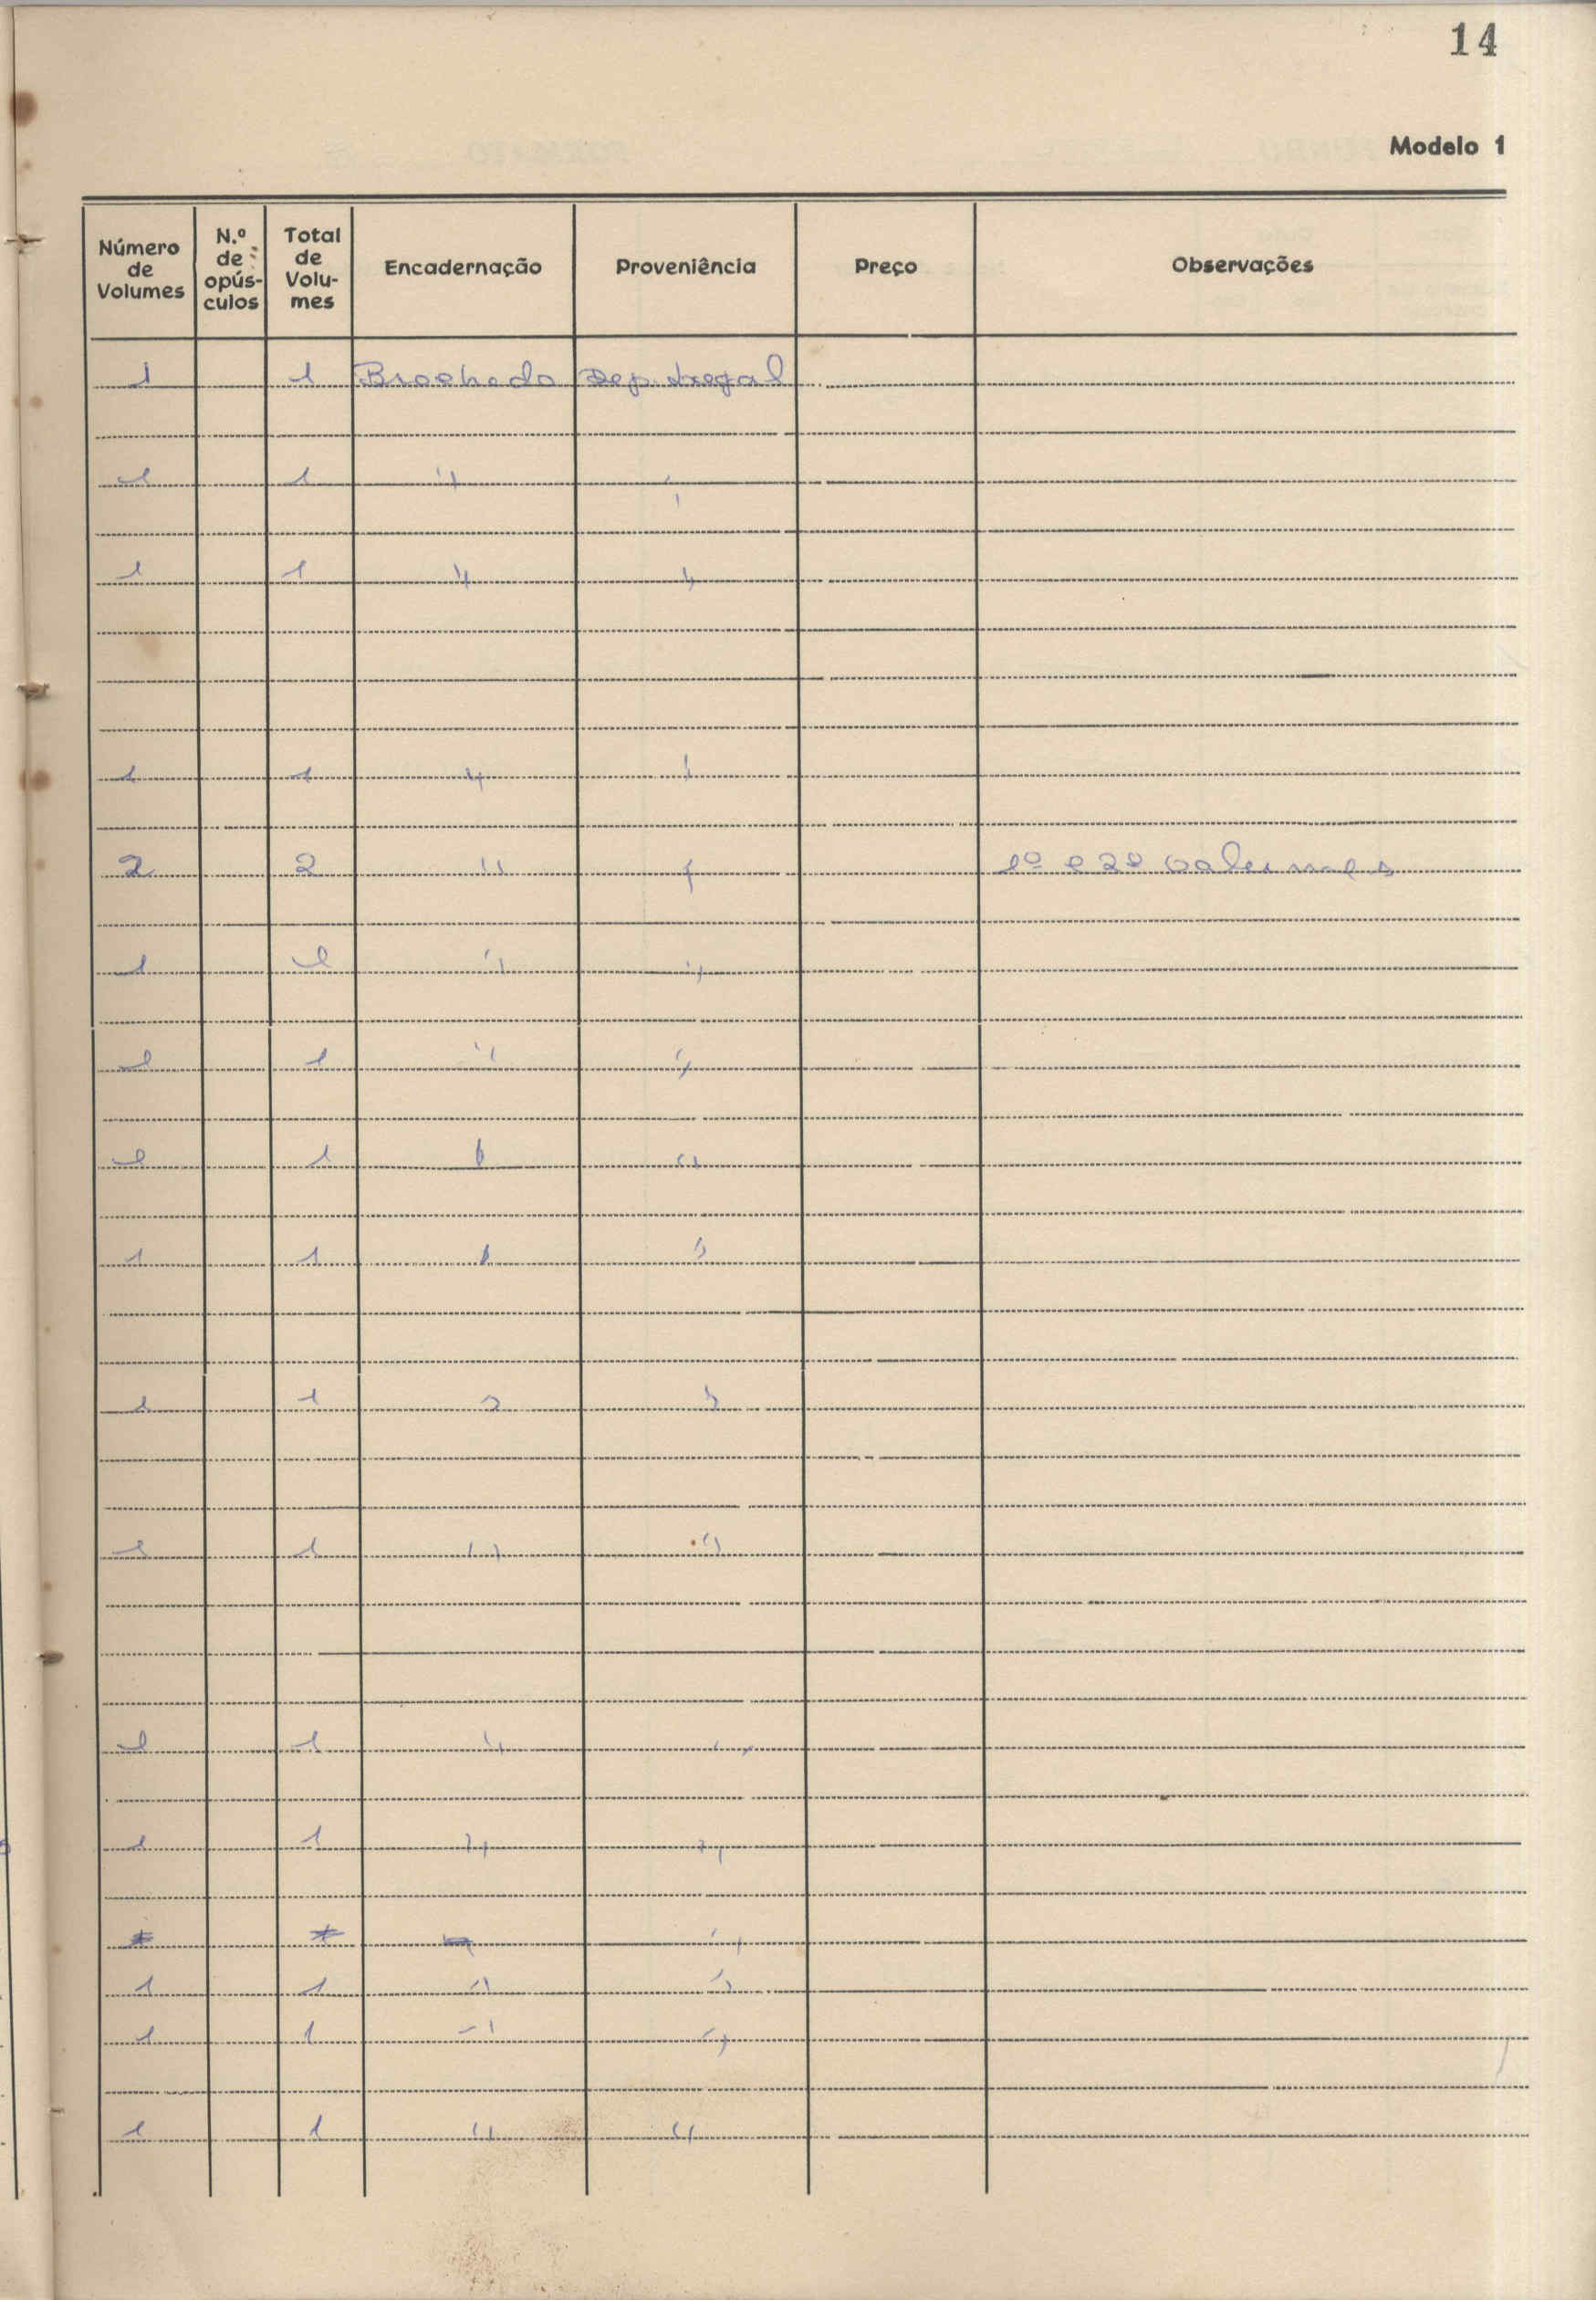 14
Modelo 1
Número de Volumes | N.º de opús-culos | Total de Volu-mes | Encadernação | Proveniência | Preço | Observações
1 1 Brochado Dep. Legal
1 1 " "
1 1 " "
1 1 " "
2 2 " " 1º e 2º volumes
1 1 " "
1 1 " "
1 1 " "
1 1 " "
1 1 " "
1 1 " "
1 1 " "
1 1 " "
"
1 1 " "
1 1 " "
1 1 " "